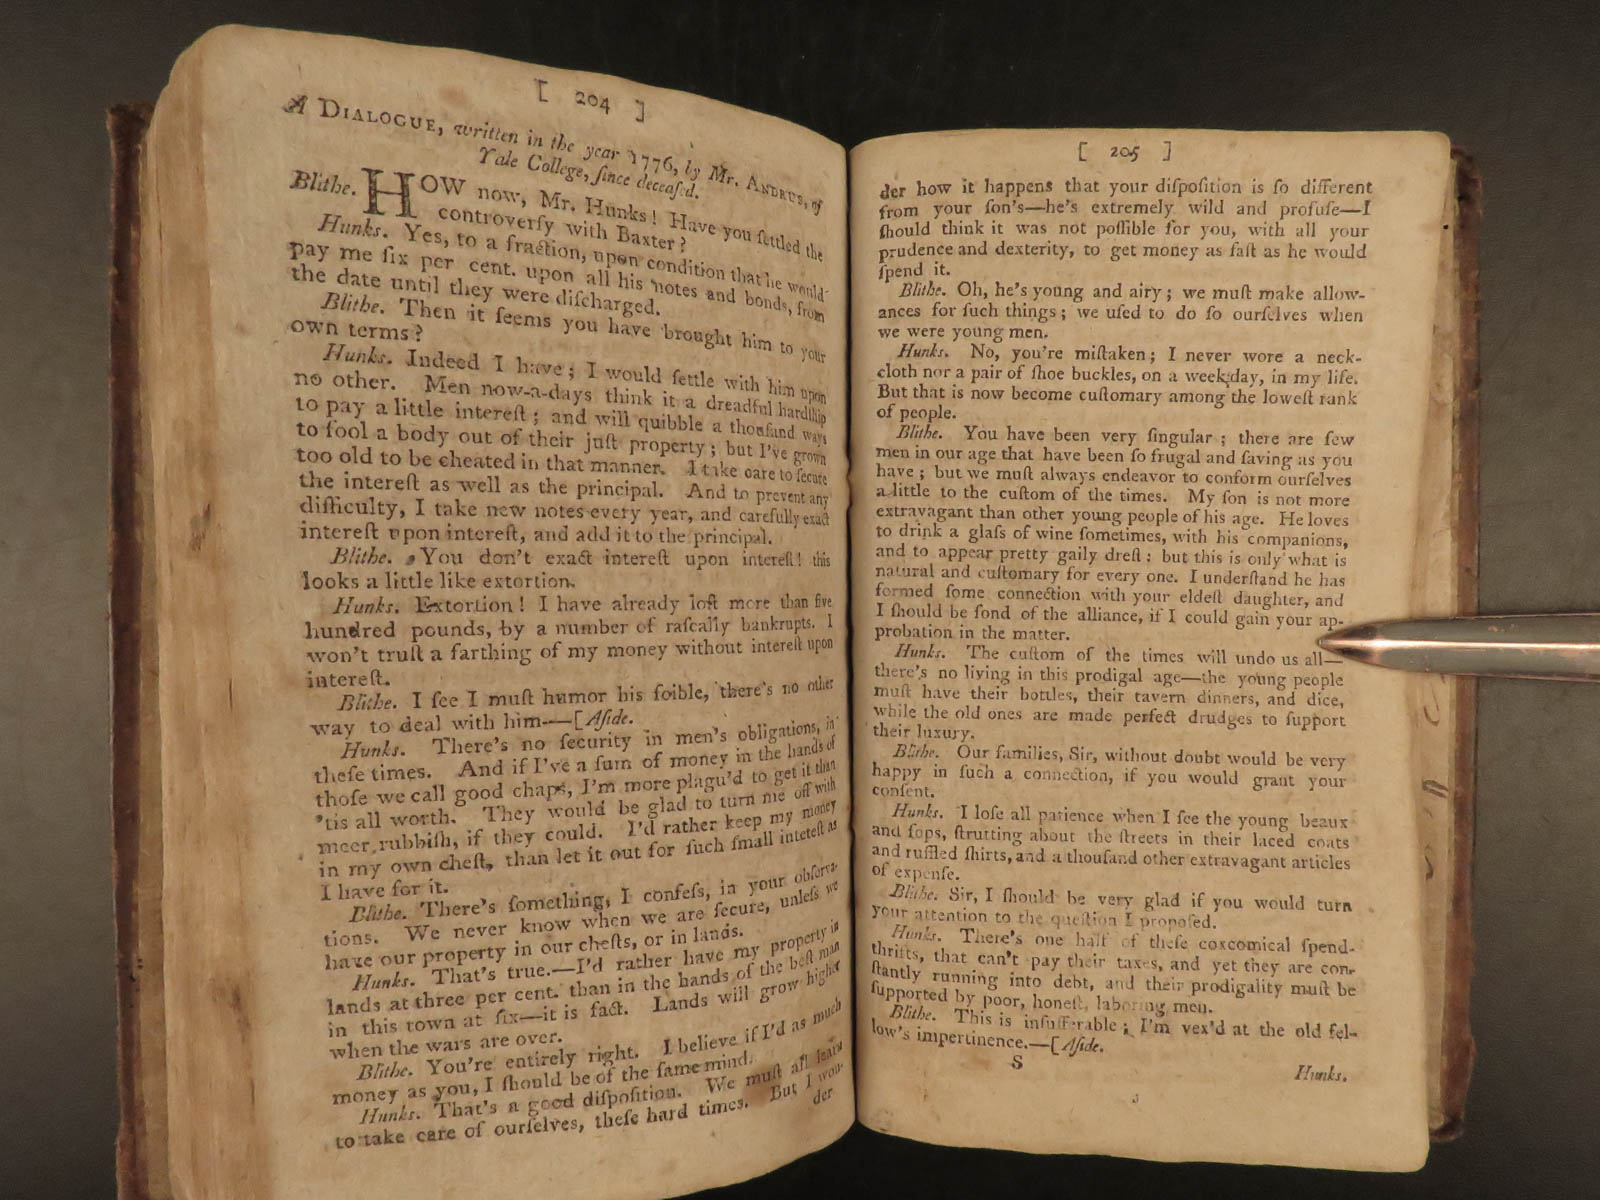 [ 204 ]
A DIALOGUE, written in the year 1776, by Mr. ANDRUS, of
Yale College, ſince deceaſed.
Blithe. HOW now, Mr. Hunks! Have you ſettled the
controverſy with Baxter?
Hunks. Yes, to a fraction, upon condition that he would
pay me ſix per cent. upon all his notes and bonds, from
the date until they were diſcharged.
Blithe. Then it ſeems you have brought him to your
own terms?
Hunks. Indeed I have; I would ſettle with him upon
no other. Men now-a-days think it a dreadful hardſhip
to pay a little intereſt; and will quibble a thouſand ways
to fool a body out of their juſt property; but I've grown
too old to be cheated in that manner. I take care to ſecure
the intereſt as well as the principal. And to prevent any
difficulty, I take new notes every year, and carefully exact
intereſt upon intereſt, and add it to the principal.
Blithe. You don't exact intereſt upon intereſt! this
looks a little like extortion.
Hunks. Extortion! I have already loſt more than five
hundred pounds, by a number of raſcally bankrupts. I
won't truſt a farthing of my money without intereſt upon
intereſt.
Blithe. I ſee I muſt humor his foible, there's no other
way to deal with him—[Aſide.
Hunks. There's no ſecurity in men's obligations, in
theſe times. And if I've a ſum of money in the hands of
thoſe we call good chaps, I'm more plagu'd to get it than
'tis all worth. They would be glad to turn me off with
meer rubbiſh, if they could. I'd rather keep my money
in my own cheſt, than let it out for ſuch ſmall inteteſt as
I have for it.
Blithe. There's ſomething, I confeſs, in your obſerva-
tions. We never know when we are ſecure, unleſs we
have our property in our cheſts, or in lands.
Hunks. That's true.—I'd rather have my property in
lands at three per cent. than in the hands of the beſt man
in this town at ſix—it is fact. Lands will grow higher
when the wars are over.
Blithe. You're entirely right. I believe if I'd as much
money as you, I ſhould be of the ſame mind.
Hunks. That's a good diſpoſition. We muſt all learn
to take care of ourſelves, theſe hard times. But I won-
der
[ 205 ]
der how it happens that your diſpoſition is ſo different
from your ſon's—he's extremely wild and profuſe—I
ſhould think it was not poſſible for you, with all your
prudence and dexterity, to get money as faſt as he would
ſpend it.
Blithe. Oh, he's young and airy; we muſt make allow-
ances for ſuch things; we uſed to do ſo ourſelves when
we were young men.
Hunks. No, you're miſtaken; I never wore a neck-
cloth nor a pair of ſhoe buckles, on a week day, in my life.
But that is now become cuſtomary among the loweſt rank
of people.
Blithe. You have been very ſingular; there are few
men in our age that have been ſo frugal and ſaving as you
have; but we muſt always endeavor to conform ourſelves
a little to the cuſtom of the times. My ſon is not more
extravagant than other young people of his age. He loves
to drink a glaſs of wine ſometimes, with his companions,
and to appear pretty gaily dreſt: but this is only what is
natural and cuſtomary for every one. I underſtand he has
formed ſome connection with your eldeſt daughter, and
I ſhould be fond of the alliance, if I could gain your ap-
probation in the matter.
Hunks. The cuſtom of the times will undo us all—
there's no living in this prodigal age—the young people
muſt have their bottles, their tavern dinners, and dice,
while the old ones are made perfect drudges to ſupport
their luxury.
Blithe. Our families, Sir, without doubt would be very
happy in ſuch a connection, if you would grant your
conſent.
Hunks. I loſe all patience when I ſee the young beaux
and fops, ſtrutting about the ſtreets in their laced coats
and ruffled ſhirts, and a thouſand other extravagant articles
of expenſe.
Blithe. Sir, I ſhould be very glad if you would turn
your attention to the queſtion I propoſed.
Hunks. There's one half of theſe coxcomical ſpend-
thrifts, that can't pay their taxes, and yet they are con-
ſtantly running into debt, and their prodigality muſt be
ſupported by poor, honeſt, laboring men.
Blithe. This is inſufferable; I'm vex'd at the old fel-
low's impertinence.—[Aſide.
S
Hunks.